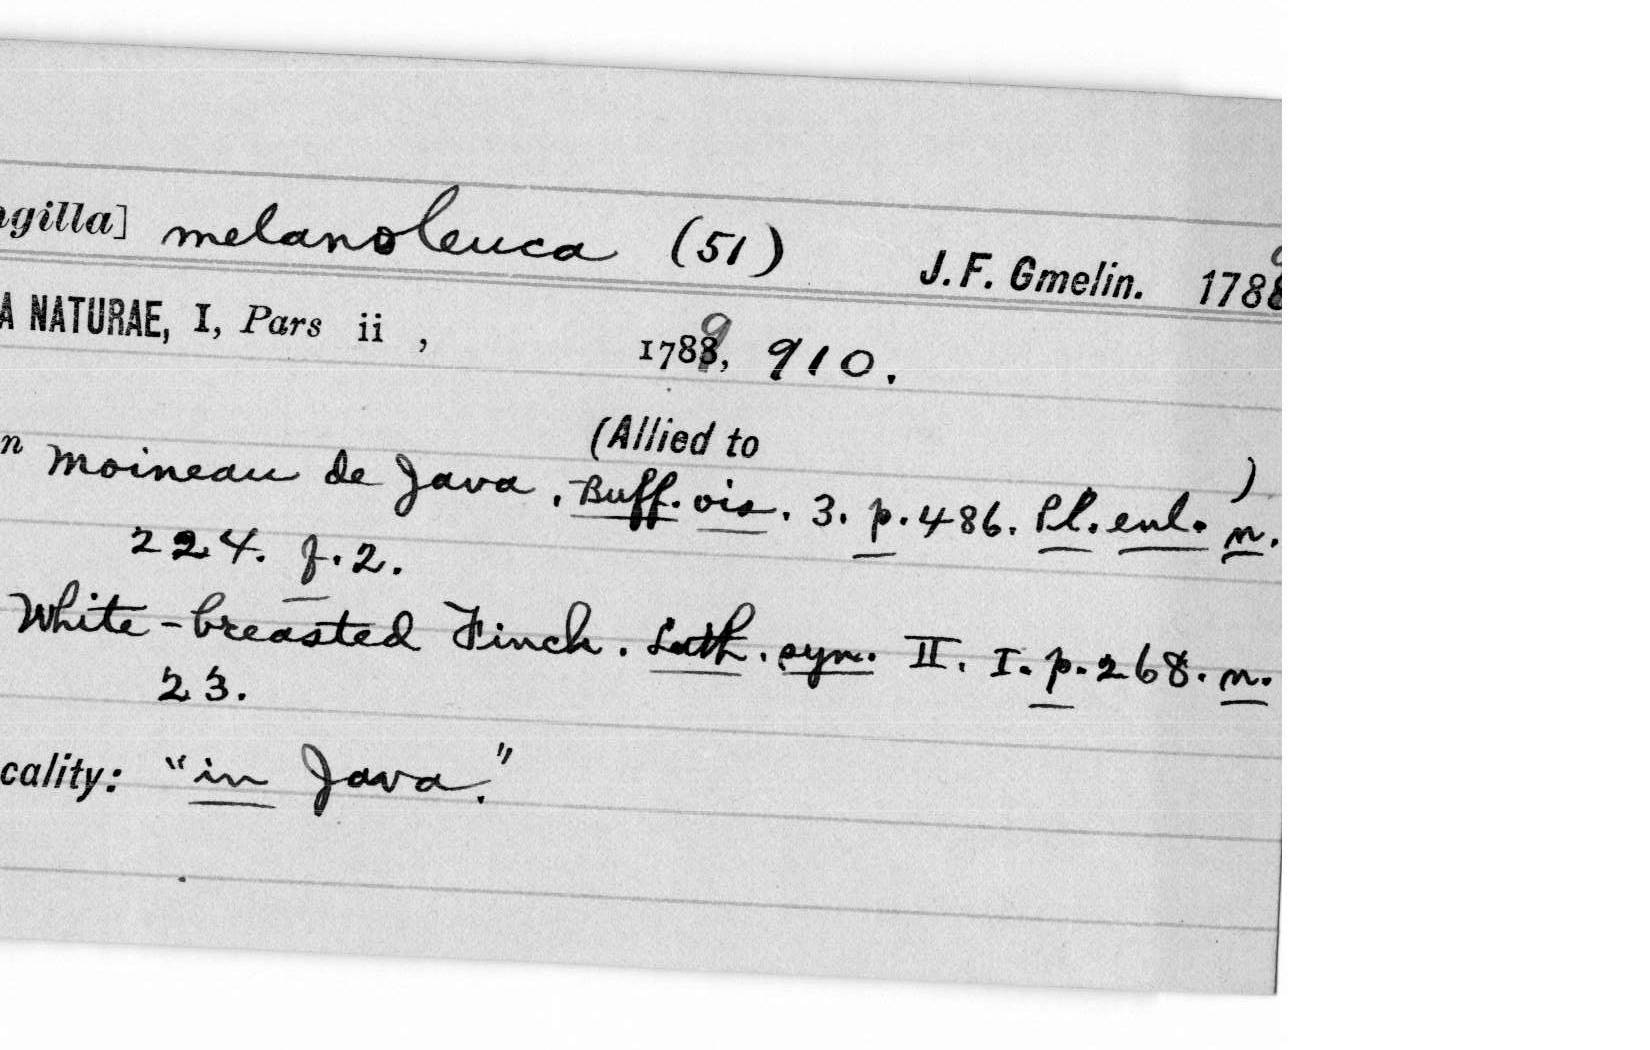 ngilla] melanoleuca (51) J. F. Gmelin. 1788
A NATURAE, I, Pars ii , 1789, 910.
(Allied to )
n Moineau de Java. Buff. ois. 3. p. 486. Pl. enl. n.
224. f. 2.
White-breasted Finch. Lath. syn. II. I. p. 268. n.
23.
cality: "in Java."